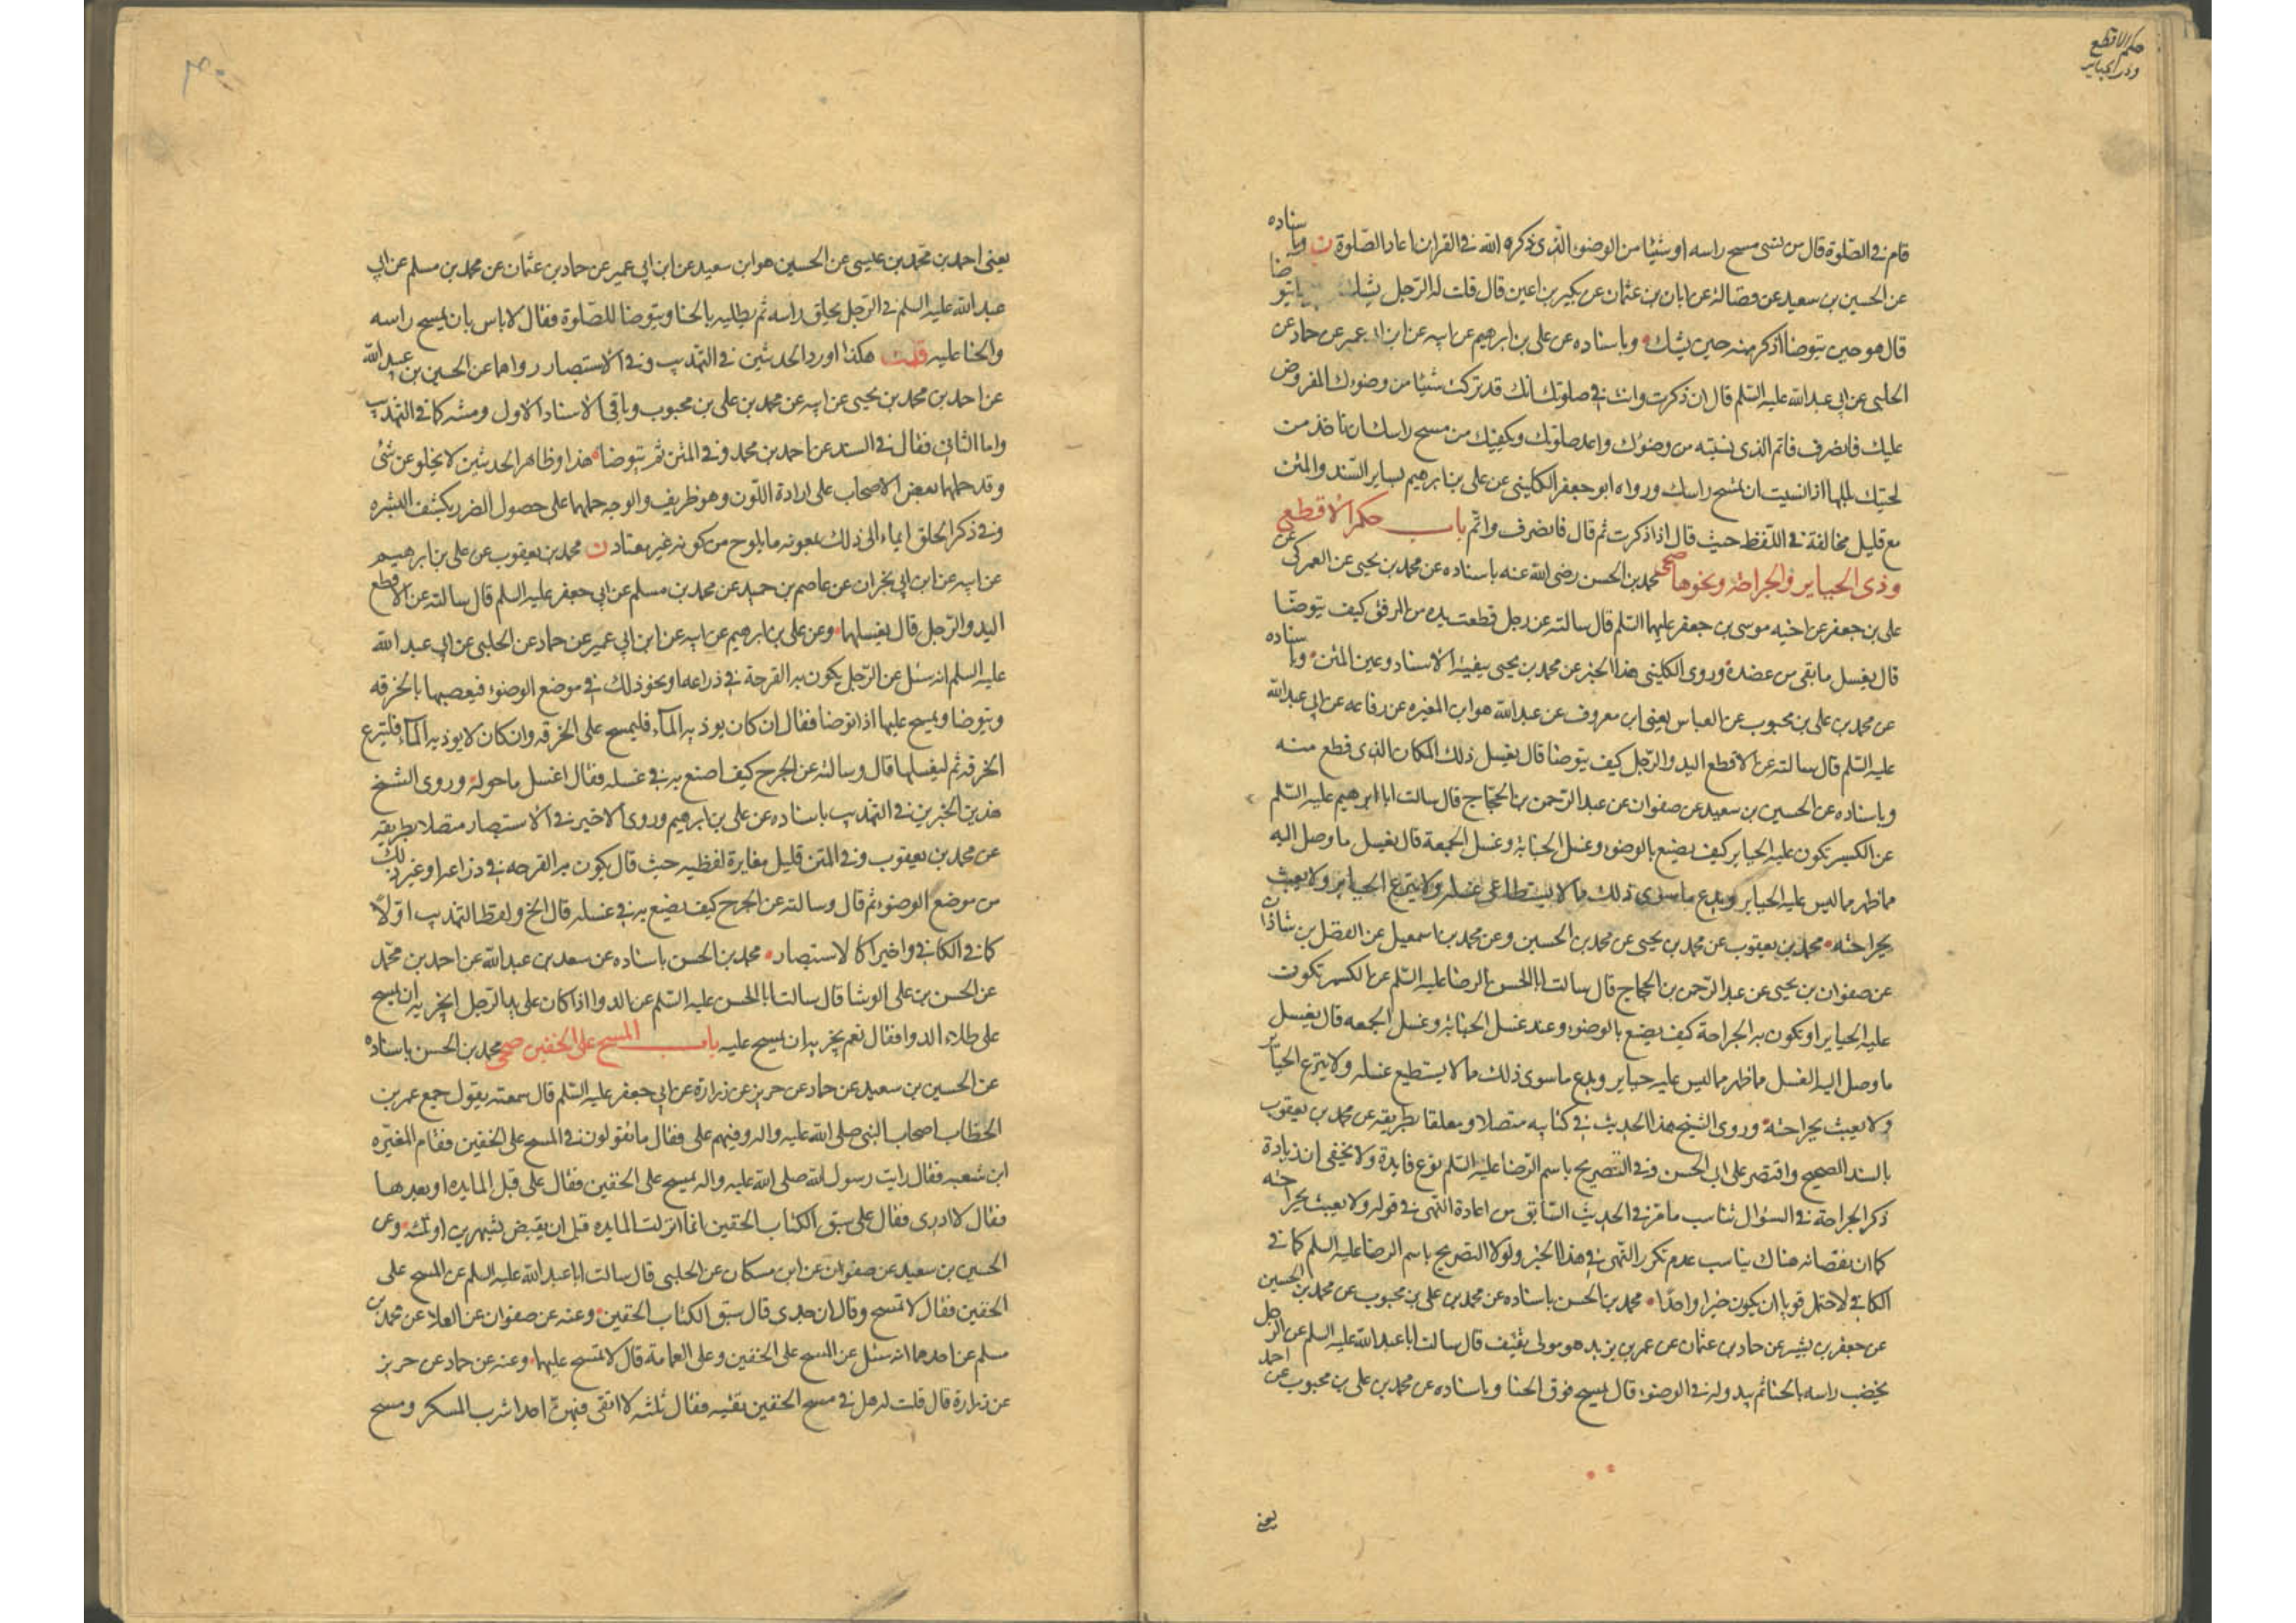 حكم الاقطع
وذى الجباير
قام فى الصلوة قال من نسى مسح راسه او شيئا من الوضوء الذى ذكره الله فى القران اعاد الصلوة ن وباسناده
عن الحسين بن سعيد عن فضالة عن ابان بن عثمان عن بكير بن اعين قال قلت له الرجل يشك بعد ما يتوضا
قال هو حين يتوضا اذكر منه حين يشك وباسناده عن على بن ابرهيم عن ابيه عن ابن ابى عمير عن حماد عن
الحلبى عن ابى عبد الله عليه السلم قال ان ذكرت وانت فى صلوتك انك قد تركت شيئا من وضوئك المفروض
عليك فانصرف فاتم الذى نسيته من وضوئك واعد صلوتك ويكفيك من مسح راسك ان تاخذ من
لحيتك بللها اذا نسيت ان تمسح راسك ورواه ابو جعفر الكلينى عن على بن ابرهيم بساير السند والمتن
مع قليل مخالفة فى اللفظ حيث قال اذا ذكرت ثم قال فانصرف واتم باب حكم الاقطع
وذى الجباير والجراحة ونحوها صحى محمد بن الحسن رضى الله عنه باسناده عن محمد بن يحيى عن العمركى عن
على بن جعفر عن اخيه موسى بن جعفر عليهما السلم قال سالته عن رجل قطعت يده من المرفق كيف يتوضا
قال يغسل ما بقى من عضده وروى الكلينى هذا الخبر عن محمد بن يحيى ببقية الاسناد وعين المتن وباسناده
عن محمد بن على بن محبوب عن العباس يعنى ابن معروف عن عبد الله هو ابن المغيره عن رفاعه عن ابى عبد الله
عليه السلم قال سالته عن الاقطع اليد والرجل كيف يتوضا قال يغسل ذلك المكان الذى قطع منه
وباسناده عن الحسين بن سعيد عن صفوان عن عبد الرحمن بن الحجاج قال سالت ابا ابرهيم عليه السلم
عن الكسير تكون عليه الجباير كيف يصنع بالوضوء وغسل الجنابة وغسل الجمعة قال يغسل ما وصل اليه
مما ظهر مما ليس عليه الجباير ويدع ما سوى ذلك مما لا يستطاع غسله ولا ينزع الجباير ولا يعبث
بجراحته محمد بن يعقوب عن محمد بن يحيى عن محمد بن الحسين وعن محمد بن اسمعيل عن الفضل بن شاذان
عن صفوان بن يحيى عن عبد الرحمن بن الحجاج قال سالت ابا الحسن الرضا عليه السلم عن الكسير تكون
عليه الجباير او تكون به الجراحة كيف يصنع بالوضوء وعند غسل الجنابة وغسل الجمعه قال يغسل
ما وصل اليه الغسل مما ظهر مما ليس عليه جباير ويدع ما سوى ذلك مما لا يستطيع غسله ولا ينزع الجباير
ولا يعبث بجراحته وروى الشيخ هذا الحديث فى كتابيه متصلا ومعلقا بطريقه عن محمد بن يعقوب
بالسند الصحيح واقتصر على ابى الحسن وفى التصريح باسم الرضا عليه السلم نوع فايدة ولا يخفى ان زيادة
ذكر الجراحة فى السؤال تناسب ما مر فى الحديث السابق من اعادة النهى فى قوله ولا يعبث بجراحته
كما ان نقصانه هناك يناسب عدم تكرر النهى فى هذا الخبر ولولا التصريح باسم الرضا عليه السلم كما فى
الكافى لاحتمل قويا ان يكون خبرا واحدا محمد بن الحسن باسناده عن محمد بن على بن محبوب عن محمد بن الحسين
عن جعفر بن بشير عن حماد بن عثمان عن عمر بن يزيد هو مولى ثقيف قال سالت ابا عبد الله عليه السلم عن الرجل
يخضب راسه بالحنا ثم يبدو له فى الوضوء قال يمسح فوق الحنا وباسناده عن محمد بن على بن محبوب عن احمد
يعنى
يعنى احمد بن محمد بن عيسى عن الحسين هو ابن سعيد عن ابن ابى عمير عن حماد بن عثمان عن محمد بن مسلم عن ابى
عبد الله عليه السلم فى الرجل يحلق راسه ثم يطليه بالحنا ويتوضا للصلوة فقال لا باس بان يمسح راسه
والحنا عليه قلت هكذا اورد الحديثين فى التهذيب وفى الاستبصار رواهما عن الحسين بن عبيد الله
عن احمد بن محمد بن يحيى عن ابيه عن محمد بن على بن محبوب وباقى الاسناد الاول ومتنه كما فى التهذيب
واما الثانى فقال فى السند عن احمد بن محمد وفى المتن ثم يتوضا هذا وظاهر الحديثين لا يخلو عن شئ
وقد حملهما بعض الاصحاب على ارادة اللون وهو ظريف والوجه حملهما على حصول الضرر بكشف البشره
وفى ذكر الحلق ايماء الى ذلك بمعونه ما يلوح من كونه غير معتاد ن محمد بن يعقوب عن على بن ابرهيم
عن ابيه عن ابن ابى نجران عن عاصم بن حميد عن محمد بن مسلم عن ابى جعفر عليه السلم قال سالته عن الاقطع
اليد والرجل قال يغسلهما وعن على بن ابرهيم عن ابيه عن ابن ابى عمير عن حماد عن الحلبى عن ابى عبد الله
عليه السلم انه سئل عن الرجل يكون به القرحة فى ذراعه او نحو ذلك فى موضع الوضوء فيعصبها بالخرقه
ويتوضا ويمسح عليها اذا توضا فقال ان كان يوذيه الماء فليمسح على الخرقه وان كان لا يوذيه الماء فلينزع
الخرقه ثم ليغسلها قال وسالته عن الجرح كيف اصنع به فى غسله فقال اغسل ما حوله وروى الشيخ
هذين الخبرين فى التهذيب باسناده عن على بن ابرهيم وروى الاخير فى الاستبصار متصلا بطريقه
عن محمد بن يعقوب وفى المتن قليل مغايرة لفظيه حيث قال يكون به القرحه فى ذراعه او غير ذلك
من موضع الوضوء ثم قال وسالته عن الجرح كيف يصنع به فى غسله قال الخ ولفظ التهذيب اولا
كما فى الكافى واخيرا كالاستبصار محمد بن الحسن باسناده عن سعد بن عبد الله عن احمد بن محمد
عن الحسن بن على الوشا قال سالت ابا الحسن عليه السلم عن الدوا اذا كان على يد الرجل ايجزيه ان يمسح
على طلاء الدوا فقال نعم يجزيه ان يمسح عليه باب المسح على الخفين صحى محمد بن الحسن باسناده
عن الحسين بن سعيد عن حماد عن حريز عن زرارة عن ابى جعفر عليه السلم قال سمعته يقول جمع عمر بن
الخطاب اصحاب النبى صلى الله عليه واله وفيهم على فقال ما تقولون فى المسح على الخفين فقام المغيره
ابن شعبه فقال رايت رسول الله صلى الله عليه واله يمسح على الخفين فقال على قبل المايده او بعدها
فقال لا ادرى فقال على سبق الكتاب الخفين انما انزلت المايده قبل ان يقبض بشهرين او ثلثه وعن
الحسين بن سعيد عن صفوان عن ابن مسكان عن الحلبى قال سالت ابا عبد الله عليه السلم عن المسح على
الخفين فقال لا تمسح وقال ان جدى قال سبق الكتاب الخفين وعنه عن صفوان عن العلا عن محمد بن
مسلم عن احدهما انه سئل عن المسح على الخفين وعلى العمامة قال لا تمسح عليهما وعنه عن حماد عن حريز
عن زرارة قال قلت له هل فى مسح الخفين تقيه فقال ثلثه لا اتقى فيهن احدا شرب المسكر ومسح